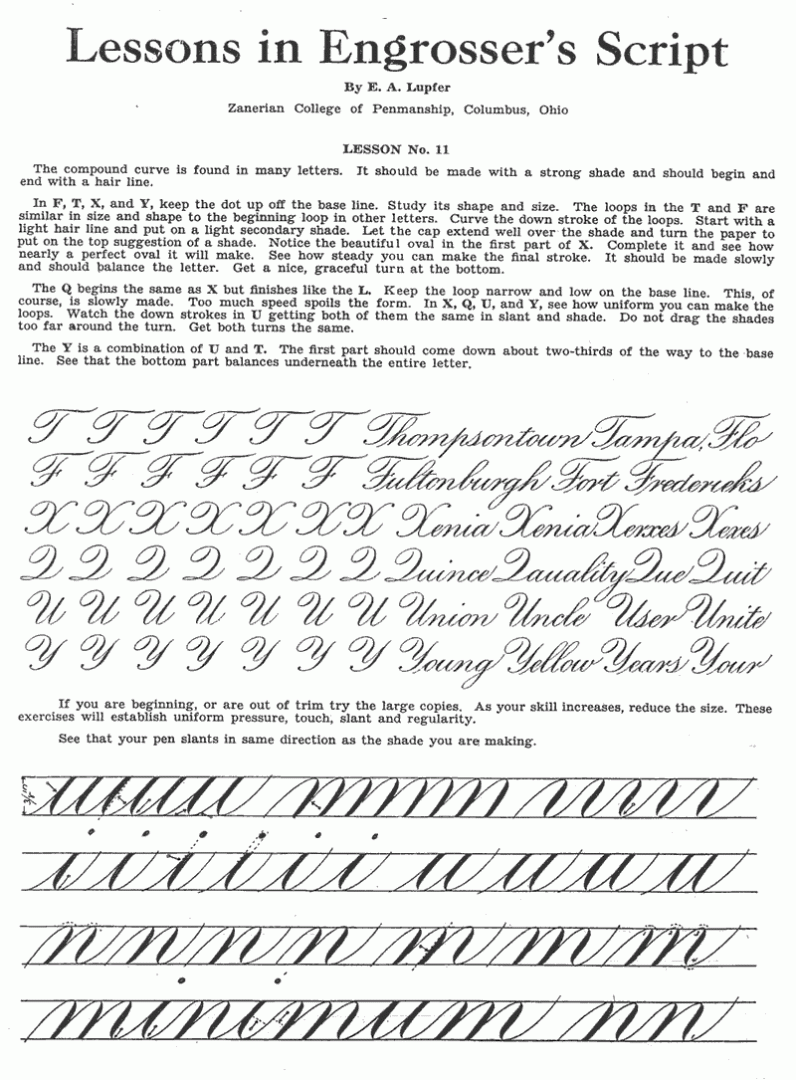 Lessons in Engrosser's Script
By E. A. Lupfer
Zanerian College of Penmanship, Columbus, Ohio
LESSON No. 11
The compound curve is found in many letters. It should be made with a strong shade and should begin and
end with a hair line.
In F, T, X, and Y, keep the dot up off the base line. Study its shape and size. The loops in the T and F are
similar in size and shape to the beginning loop in other letters. Curve the down stroke of the loops. Start with a
light hair line and put on a light secondary shade. Let the cap extend well over the shade and turn the paper to
put on the top suggestion of a shade. Notice the beautiful oval in the first part of X. Complete it and see how
nearly a perfect oval it will make. See how steady you can make the final stroke. It should be made slowly
and should balance the letter. Get a nice, graceful turn at the bottom.
The Q begins the same as X but finishes like the L. Keep the loop narrow and low on the base line. This, of
course, is slowly made. Too much speed spoils the form. In X, Q, U, and Y, see how uniform you can make the
loops. Watch the down strokes in U getting both of them the same in slant and shade. Do not drag the shades
too far around the turn. Get both turns the same.
The Y is a combination of U and T. The first part should come down about two-thirds of the way to the base
line. See that the bottom part balances underneath the entire letter.
T T T T T T Thompsontown Tampa, Flo
F F F F F F Fultonburgh Fort Fredericks
X X X X X X X Xenia Xenia Xerxes Xexes
Q Q Q Q Q Q Q Quince Qauality Que Quit
U U U U U U U Union Uncle User Unite
Y Y Y Y Y Y Y Young Yellow Years Your
If you are beginning, or are out of trim try the large copies. As your skill increases, reduce the size. These
exercises will establish uniform pressure, touch, slant and regularity.
See that your pen slants in same direction as the shade you are making.
i i i i i i u u u u
n n n n m m m
minimum n n